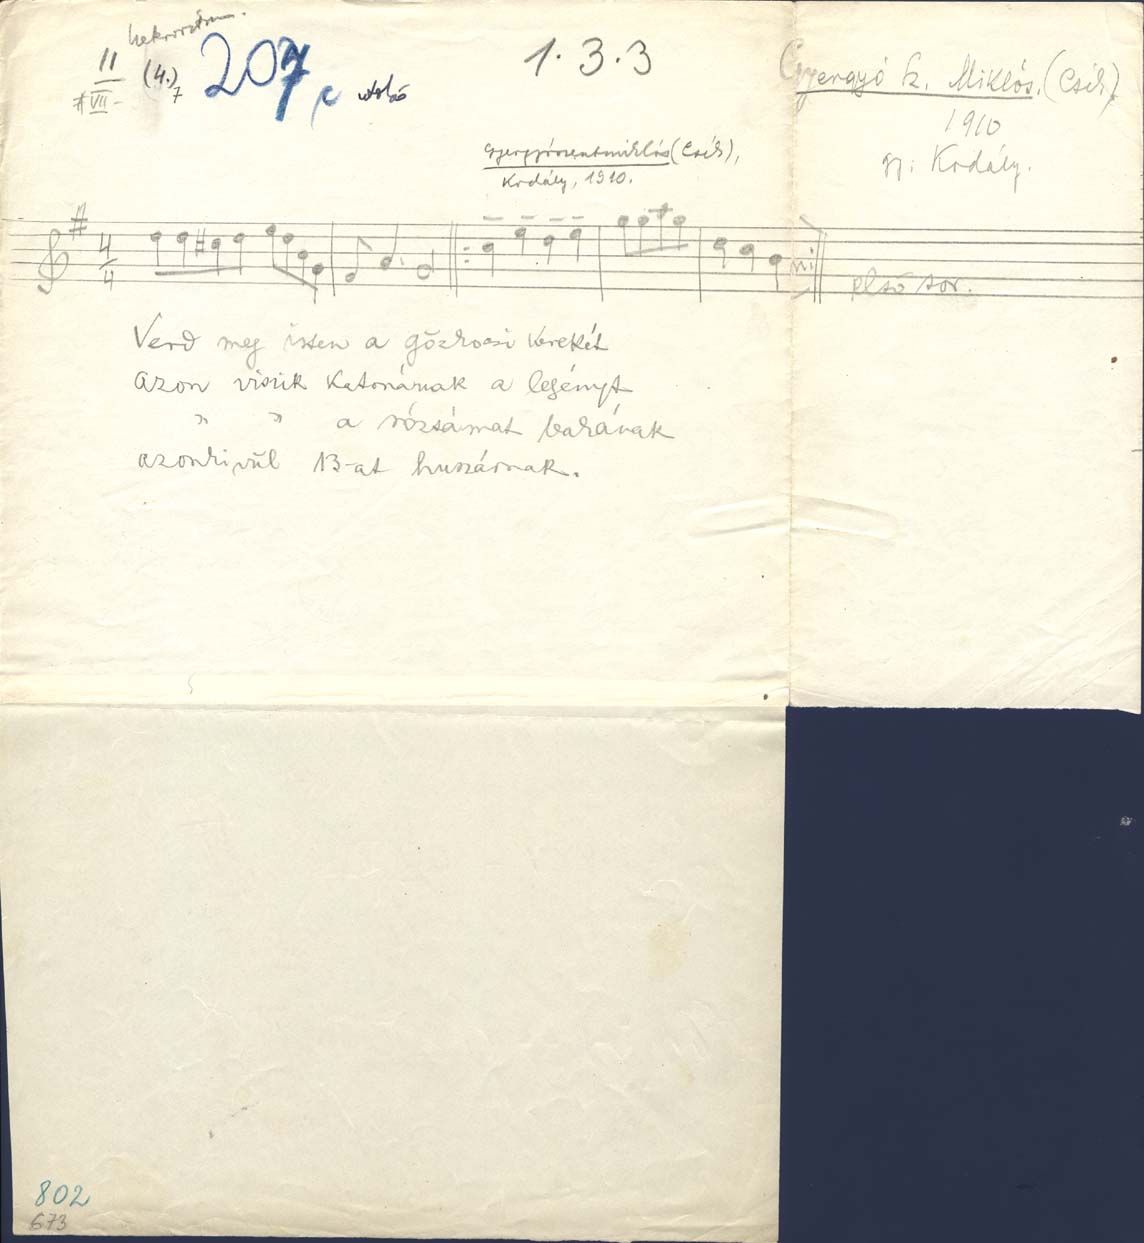 II
# VII-
(4.)
7
207
utolsó
1. 3. 3
Gyergyó Sz. Miklós. (Csík)
1910
gy: Kodály.
Gyergyószentmiklós (Csík),
Kodály, 1910.
4
4
első sor.
Verd meg isten a gőzkocsi kerekét
azon viszik katonának a legényt
" " a rózsámat bakának
azonkivül 13-at huszárnak.
802
673